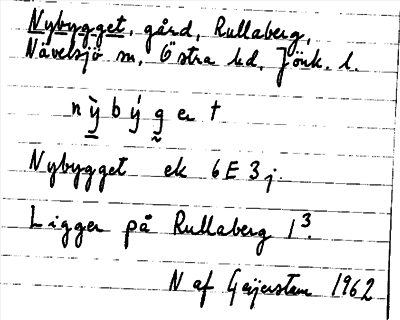 Nybygget, gård, Rullaberg,
Nävelsjö sn, Östra hd, Jönk. l.
nỳbýget
Nybygget ek 6E 3j
Ligger på Rullaberg 1³.
N af Geijerstam 1962